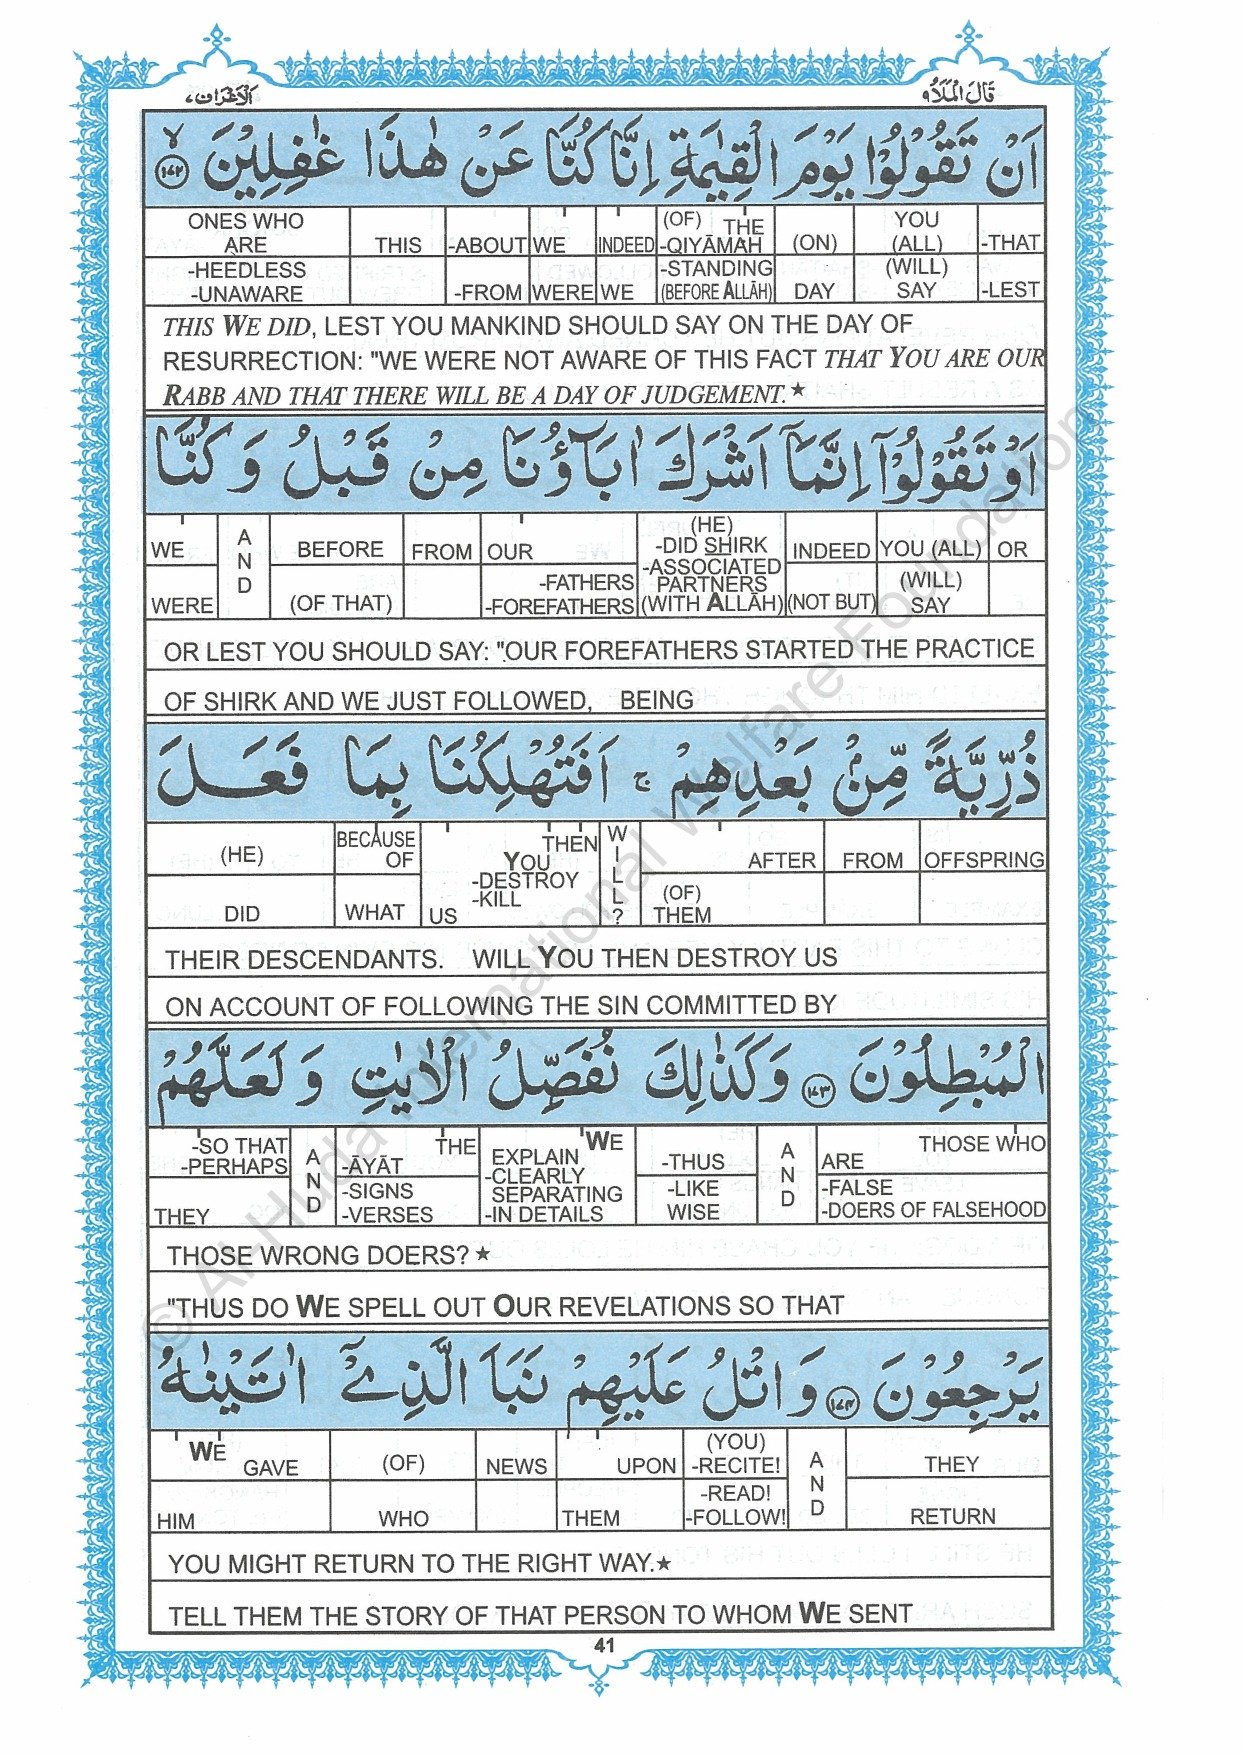 الاعراف٧ قال الملأ٩
اَنْ تَقُوْلُوْا يَوْمَ الْقِيٰمَةِ اِنَّا كُنَّا عَنْ هٰذَا غٰفِلِيْنَ ﴿۱۷۲﴾ لا
ONES WHO ARE THIS -ABOUT WE INDEED (OF) THE -QIYĀMAH (ON) YOU (ALL) -THAT
-HEEDLESS -UNAWARE -FROM WERE WE -STANDING (BEFORE ALLĀH) DAY (WILL) SAY -LEST
THIS WE DID, LEST YOU MANKIND SHOULD SAY ON THE DAY OF
RESURRECTION: "WE WERE NOT AWARE OF THIS FACT THAT YOU ARE OUR
RABB AND THAT THERE WILL BE A DAY OF JUDGEMENT.★
اَوْ تَقُوْلُوْٓا اِنَّمَآ اَشْرَكَ اٰبَآؤُنَا مِنْ قَبْلُ وَ كُنَّا
WE AND BEFORE FROM OUR (HE) -DID SHIRK -ASSOCIATED PARTNERS (WITH ALLĀH) INDEED YOU (ALL) OR
WERE (OF THAT) -FATHERS -FOREFATHERS (NOT BUT) (WILL) SAY
OR LEST YOU SHOULD SAY: "OUR FOREFATHERS STARTED THE PRACTICE
OF SHIRK AND WE JUST FOLLOWED, BEING
ذُرِّيَّةً مِّنْۢ بَعْدِهِمْ ۚ اَفَتُهْلِكُنَا بِمَا فَعَلَ
(HE) BECAUSE OF THEN YOU -DESTROY -KILL WILL? AFTER FROM OFFSPRING
DID WHAT US (OF) THEM
THEIR DESCENDANTS. WILL YOU THEN DESTROY US
ON ACCOUNT OF FOLLOWING THE SIN COMMITTED BY
الْمُبْطِلُوْنَ ﴿۱۷۳﴾ وَ كَذٰلِكَ نُفَصِّلُ الْاٰيٰتِ وَ لَعَلَّهُمْ
-SO THAT -PERHAPS AND THE -ĀYĀT WE EXPLAIN -CLEARLY SEPARATING -IN DETAILS -THUS AND THOSE WHO ARE
THEY -SIGNS -VERSES -LIKE WISE -FALSE -DOERS OF FALSEHOOD
THOSE WRONG DOERS?★
"THUS DO WE SPELL OUT OUR REVELATIONS SO THAT
يَرْجِعُوْنَ ﴿۱۷۴﴾ وَ اتْلُ عَلَيْهِمْ نَبَاَ الَّذِيْٓ اٰتَيْنٰهُ
WE GAVE (OF) NEWS UPON (YOU) -RECITE! AND THEY
HIM WHO THEM -READ! -FOLLOW! RETURN
YOU MIGHT RETURN TO THE RIGHT WAY.★
TELL THEM THE STORY OF THAT PERSON TO WHOM WE SENT
41
© Al-Huda International Welfare Foundation